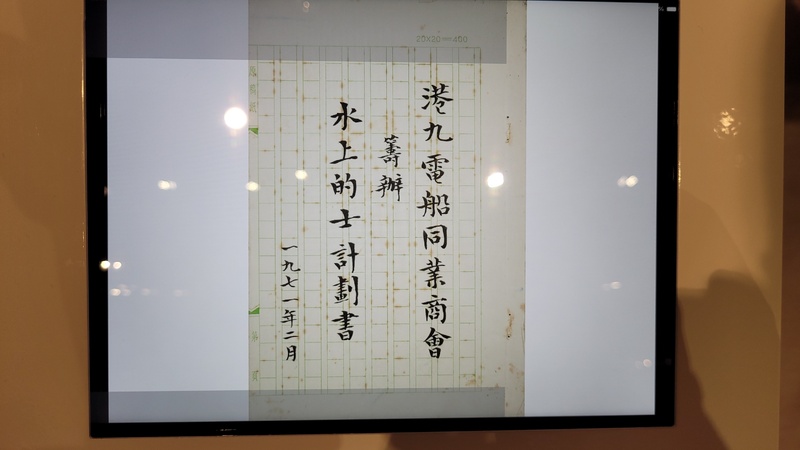 20×20=400
港九電船同業商會
籌辦
水上的士計劃書
一九七一年二月